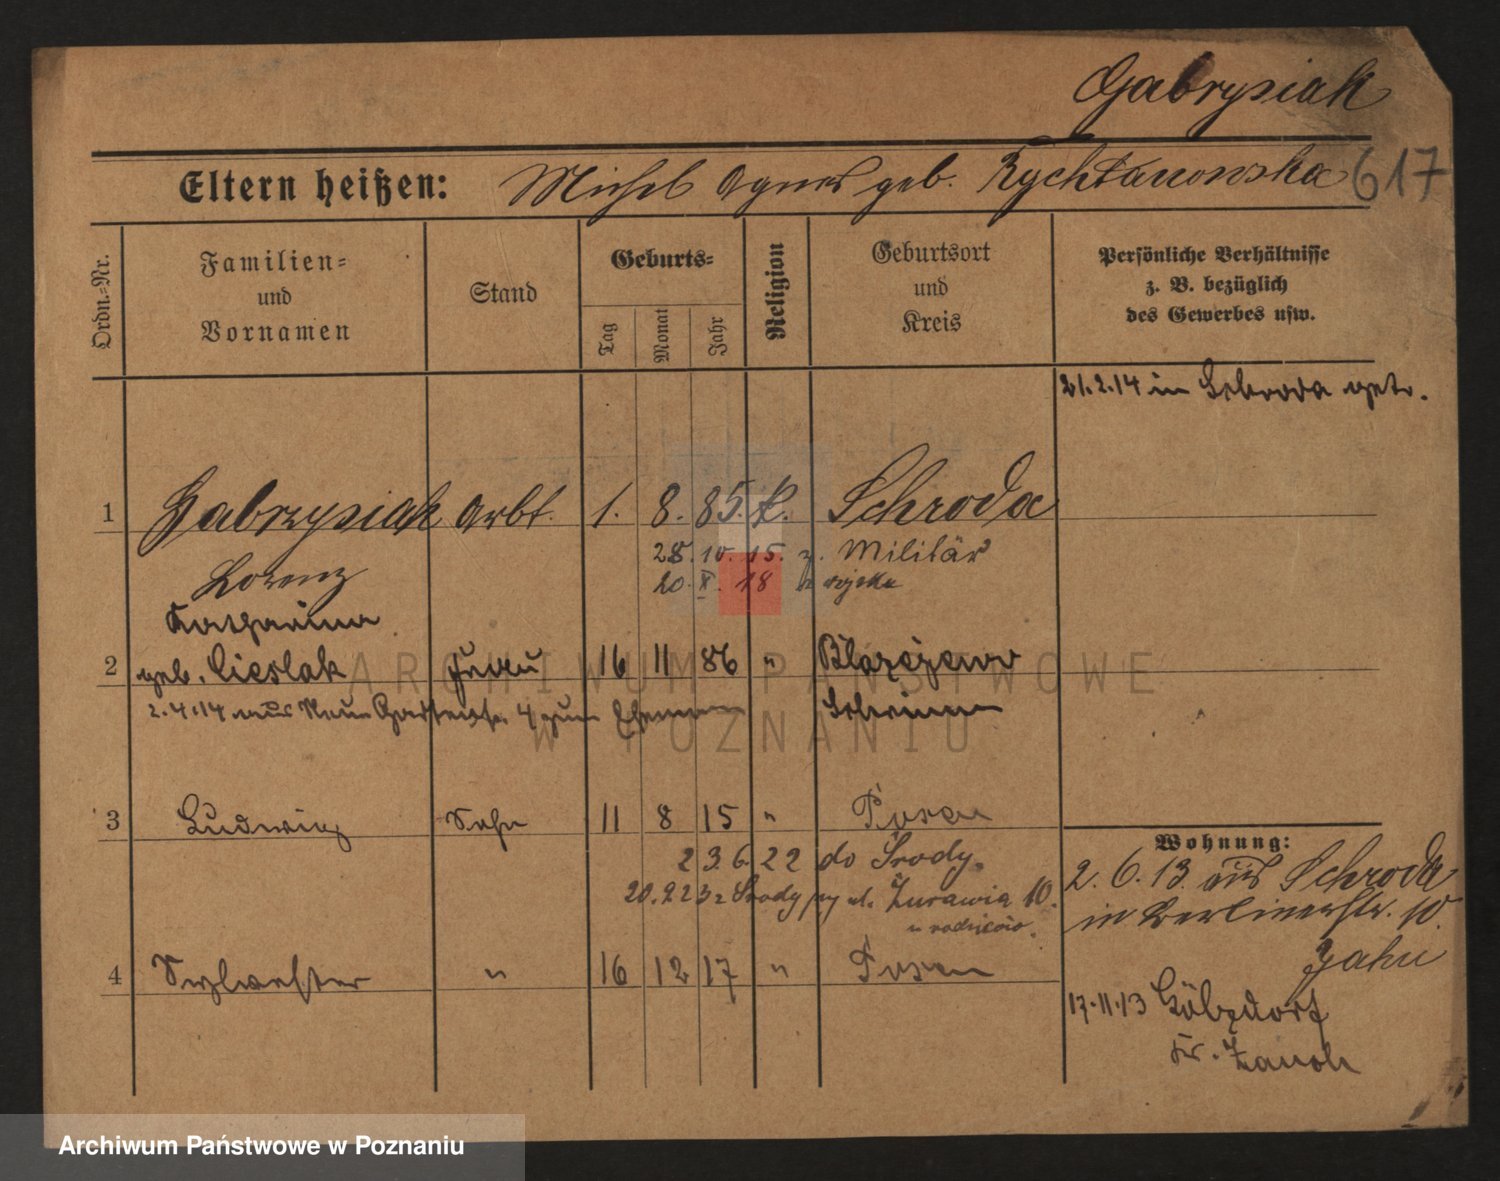 Gabrysiak
617
Eltern heißen: Michel Agnes geb. Rychtanowska
Ordn.=Nr.
Familien=
und
Vornamen
Stand
Geburts=
Tag
Monat
Jahr
Religion
Geburtsort
und
Kreis
Persönliche Verhältnisse
z. B. bezüglich
des Gewerbes usw.
21.2.14 in Schroda getr.
1 Gabrysiak Arbt. 1. 8. 85. k. Schroda
Lorenz
28. 10. 15. z. Militär
20. X. 18 z wojska
Katharina
2 geb. Cieslak Frau 16 11 86 " Blazejewo
2.4.14 aus Neue Gartenstr. 4 zum Ehemann Schrimm
3 Ludwig Sohn 11 8 15 " Posen
2 3 6 22 do Środy.
20.9.23 z Środy przy ul. Żurawia 10.
u rodziców.
4 Sylwester " 16 12 17 " Posen
Wohnung:
2. 6. 13. aus Schroda
in Berlinerstr. 10.
Jahn
17.11.13
Kr.
ARCHIWUM PAŃSTWOWE
W POZNANIU
Archiwum Państwowe w Poznaniu